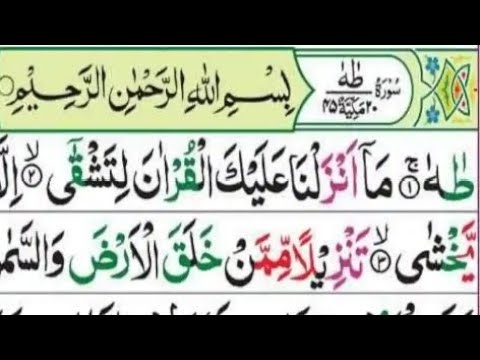 سُوْرَةُ طٰهٰ
٢٠ مَكِّيَّةٌ ٤٥
بِسْمِ اللّٰهِ الرَّحْمٰنِ الرَّحِيْمِ
طٰهٰ ۚ﴿١﴾ مَاۤ اَنْزَلْنَا عَلَيْكَ الْقُرْاٰنَ لِتَشْقٰٓى ۙ﴿٢﴾ اِلَّا
يَّخْشٰى ۙ﴿٣﴾ تَنْزِيْلًا مِّمَّنْ خَلَقَ الْاَرْضَ وَالسَّمٰ